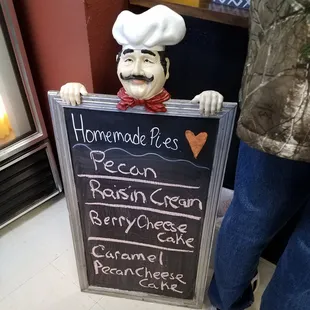 Homemade Pies
Pecan
Raisin Cream
Berry Cheese
Cake
Caramel
Pecan Cheese
Cake